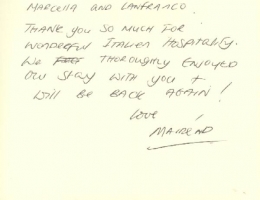 MARCELLA AND LANFRANCO.
THANK YOU SO MUCH FOR
WONDERFUL ITALIAN HOSPITALITY.
WE THOROUGHLY ENJOYED
OUR STAY WITH YOU +
WILL BE BACK AGAIN!
LOVE,
MAIREAD